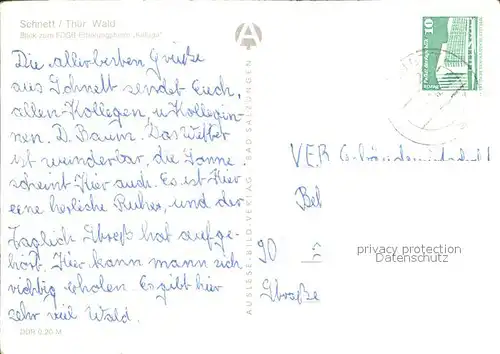 Schnett / Thür. Wald
Blick zum FDGB Erholungsheim "Kaluga"
Die allerbesten Grüße
aus Schnett sendet Euch,
allen Kollegen, u Kollegin-
nen. D. Baum. Das Wetter
ist wunderbar, die Sonne
scheint Hier auch. Es ist Hier
eine herliche Ruhe, und der
Täglich Streß hat aufge-
hört. Hier kann mann sich
richtig erholen. Es gibt hier
sehr viel Wald.
DDR 0,20 M
AUSLESE-BILD-VERLAG · BAD SALZUNGEN
A
10
VEB
Bel
90
Straße
privacy protection
Datenschutz